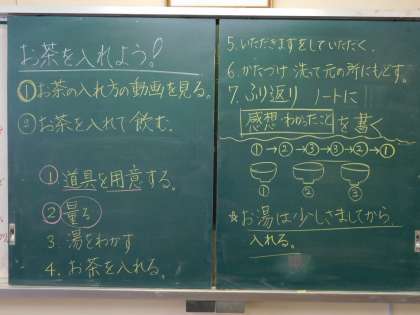 お茶を入れよう!
①お茶の入れ方の動画を見る。
②お茶を入れて飲む。
①道具を用意する。
②量る
3. 湯をわかす
4. お茶を入れる。
5. いただきますをしていただく.
6. かたづけ 洗って元の所にもどす。
7. ふり返り ノートに
感想・わかったことを書く
①→②→③→③→②→①
① ② ③
☆お湯は少しさましてから、
入れる。